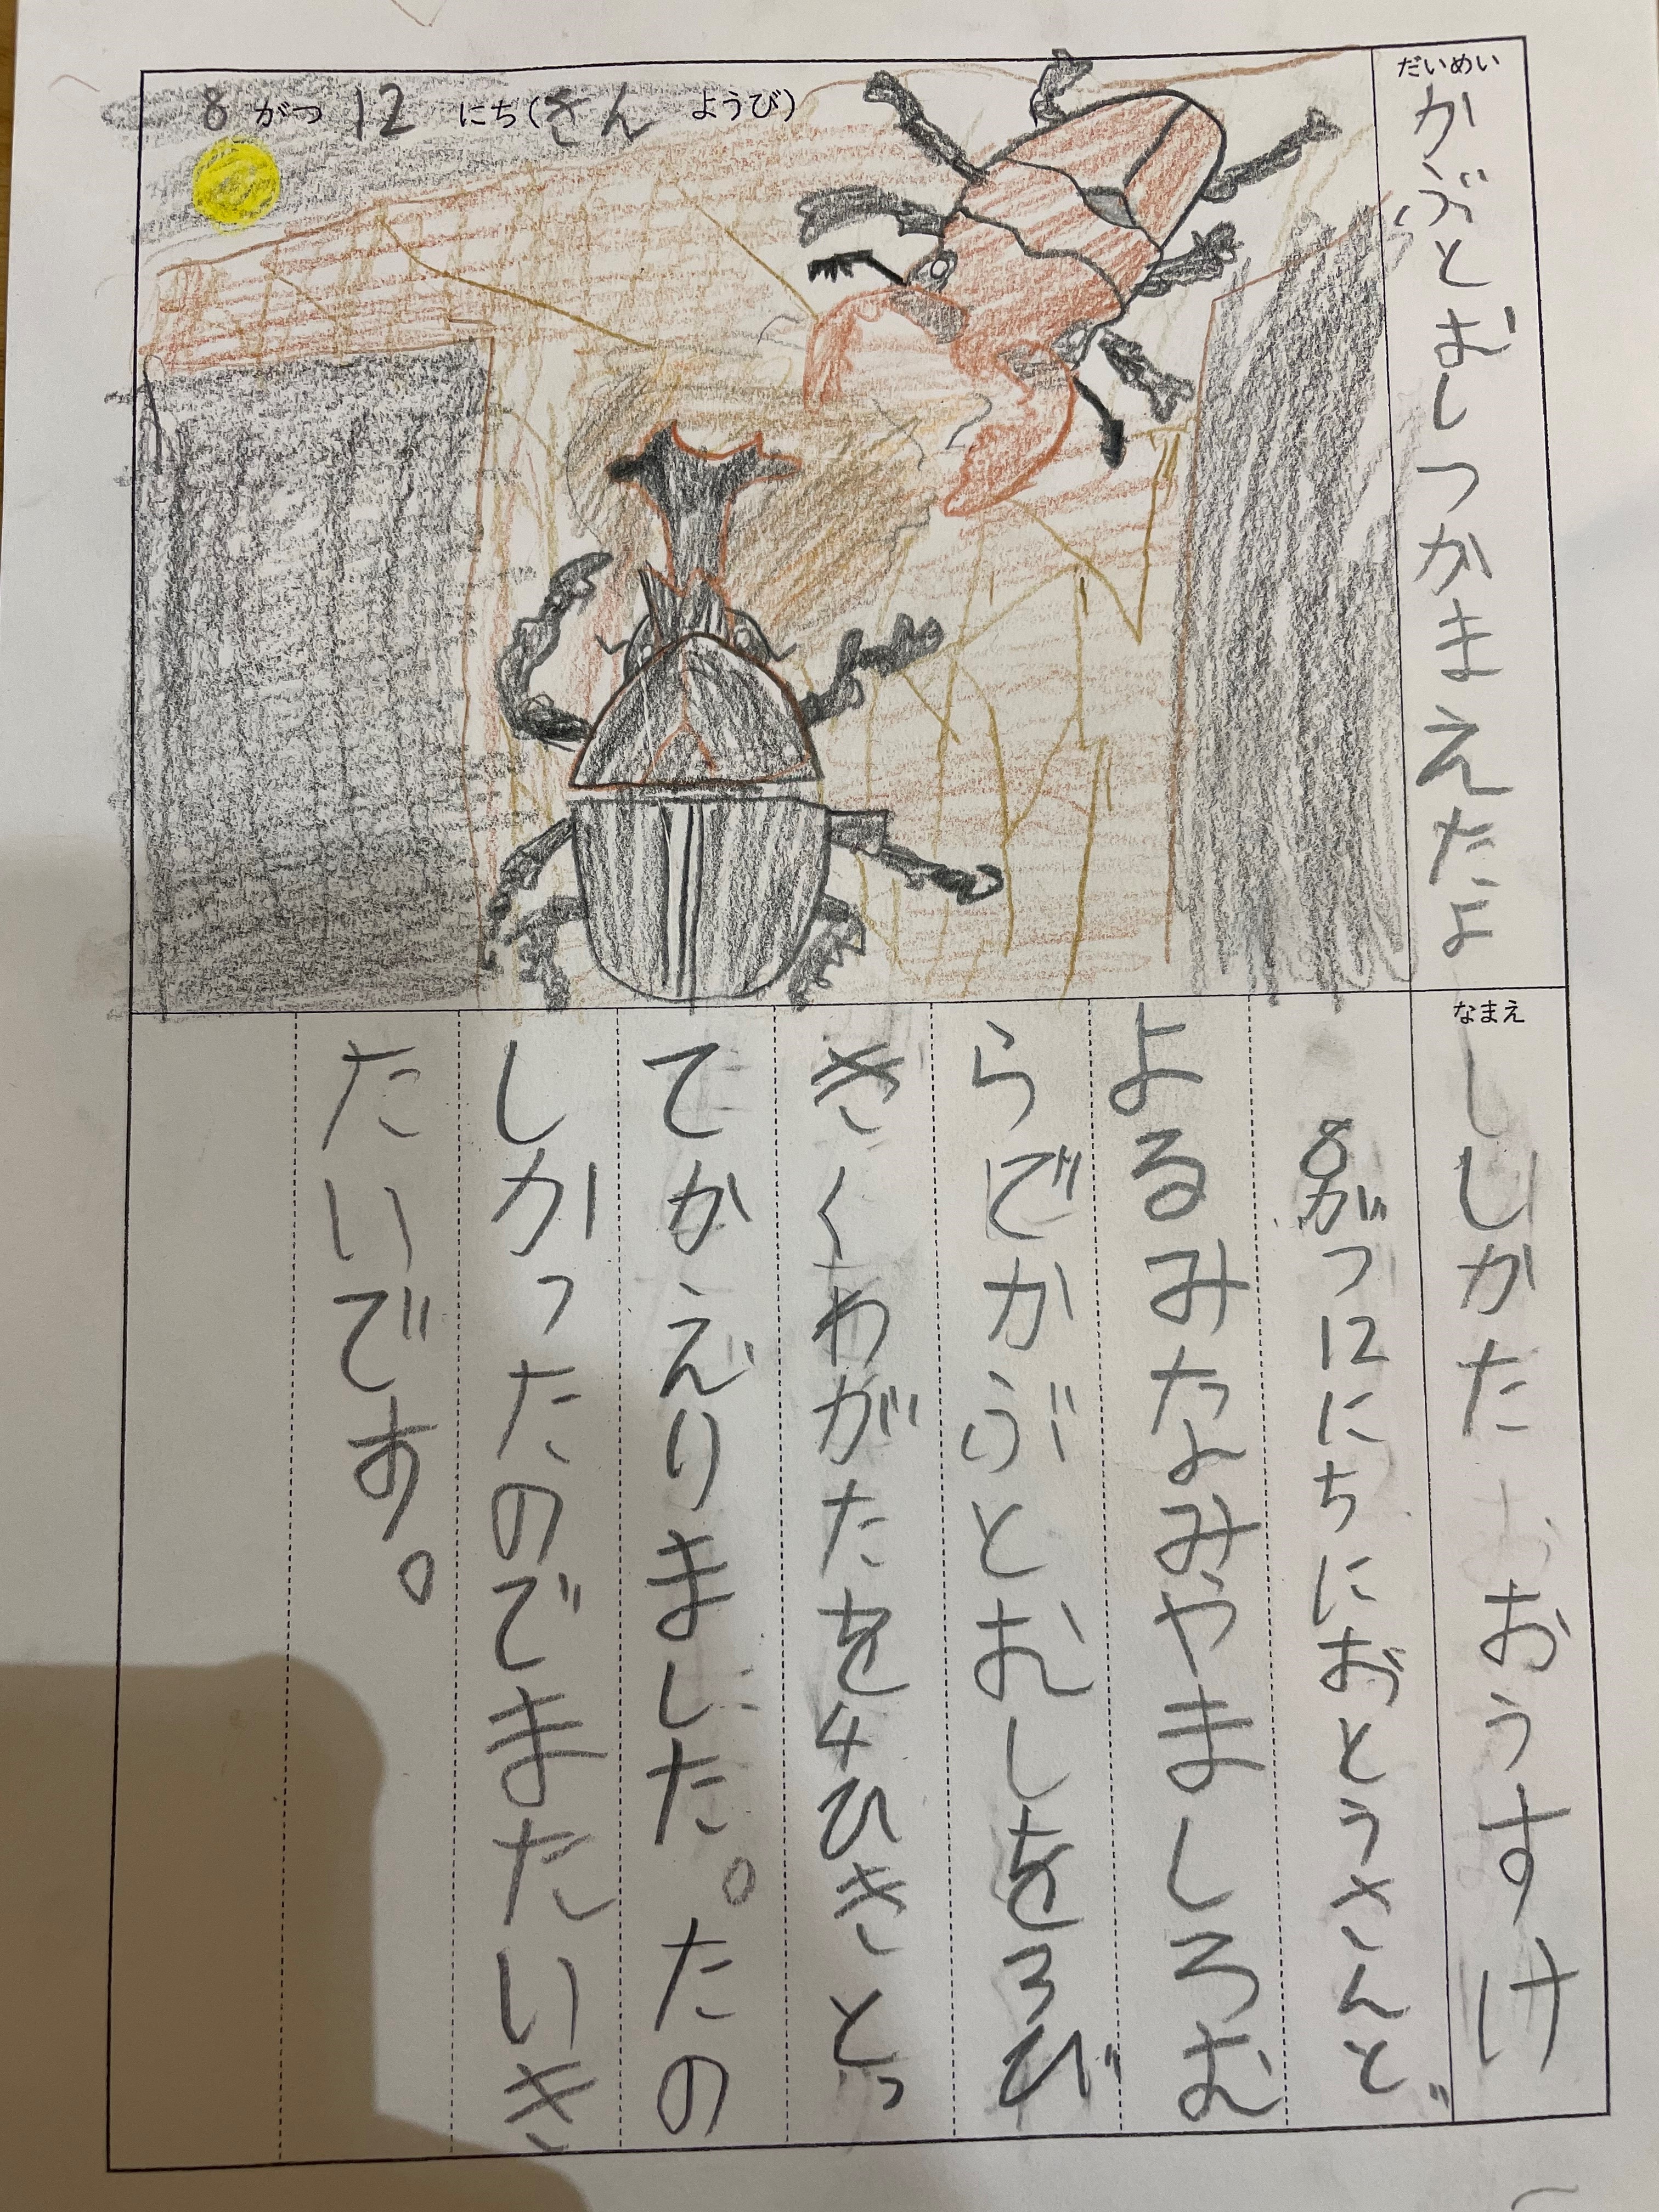 だいめい
かぶとむしつかまえたよ
8 がつ 12 にち(きん ようび)
なまえ
しかた おうすけ
8がつ12にちにおとうさんど
よるみなみやましろむ
らでかぶとむしを3び
きくわがたを4ひきとっ
てかえりました。たの
しかったのでまたいき
たいです。